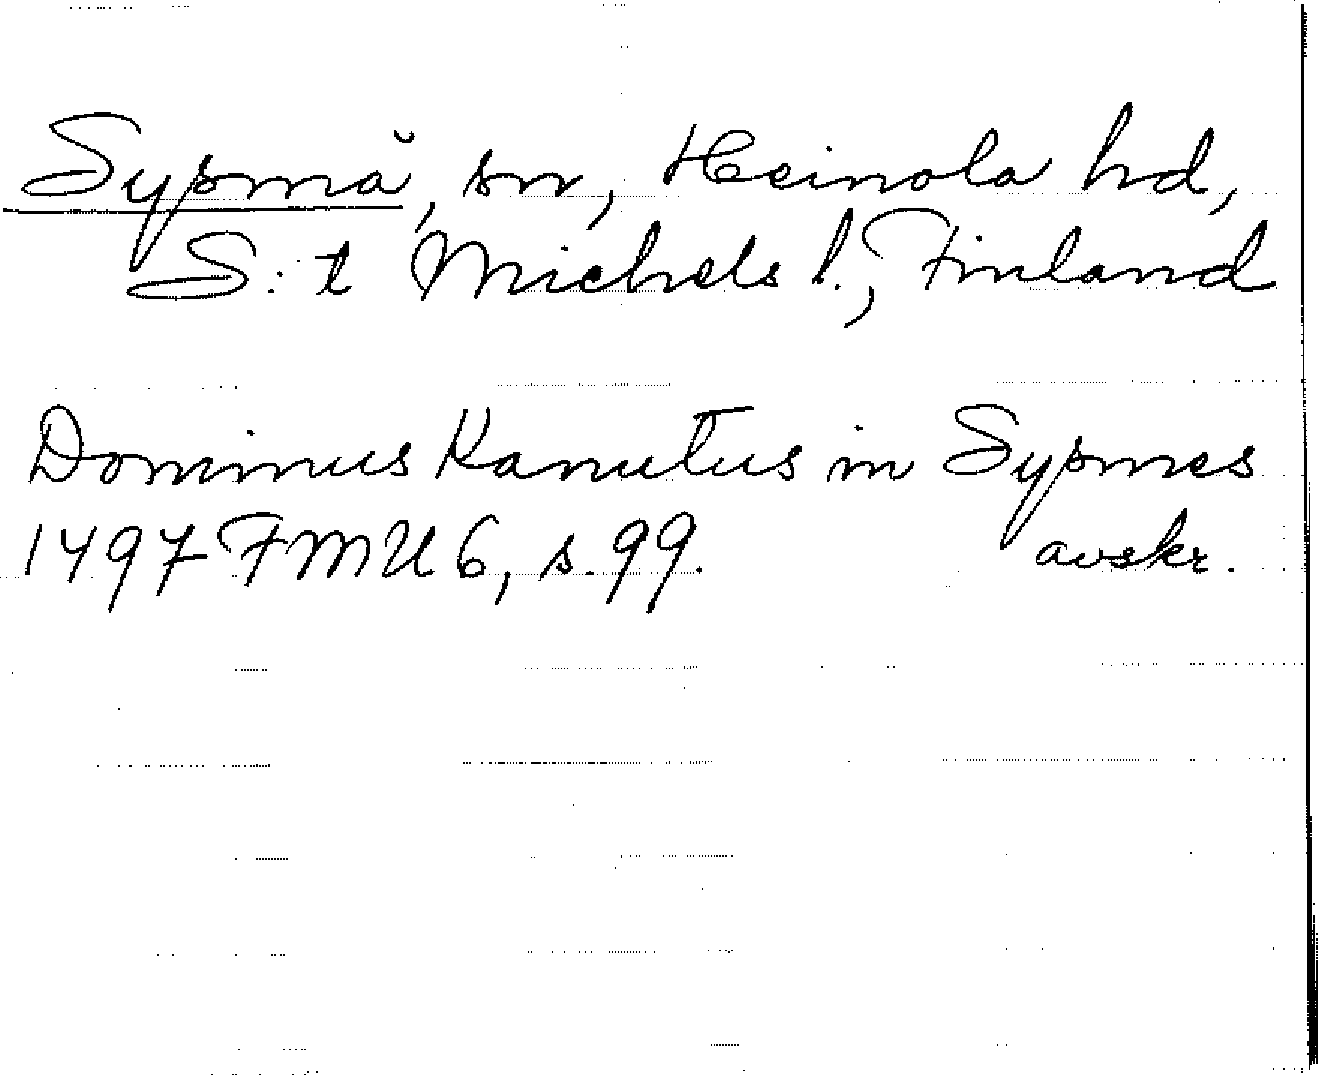 Sysmä, sn, Heinola hd,
S:t Michels l., Finland
Dominus Kanutus in Sysmes
1497 FMU 6, s. 99. avskr.